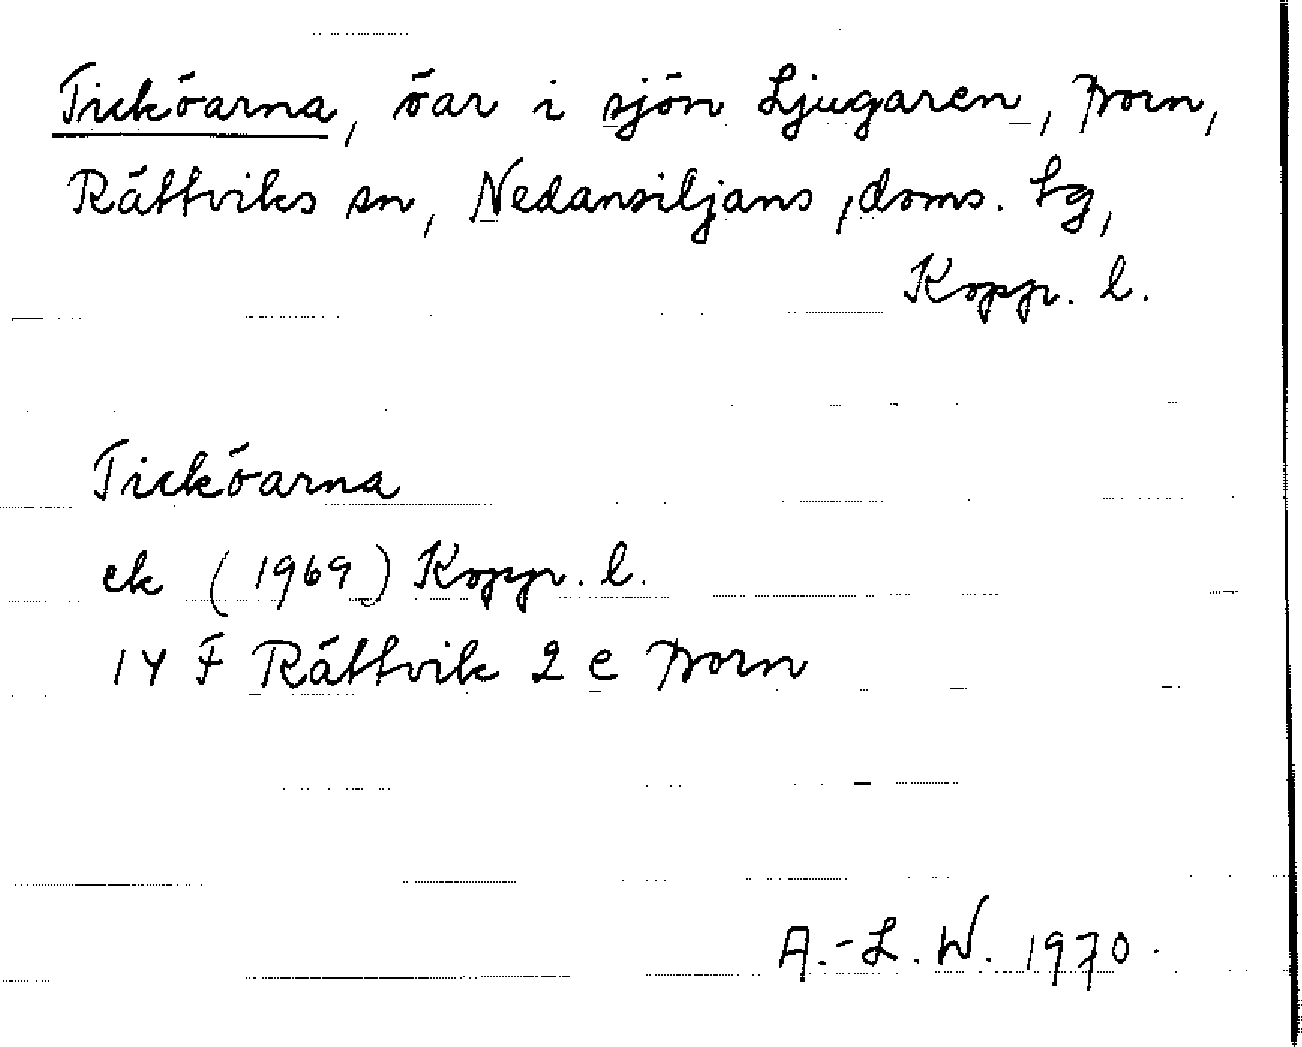 Ticköarna, öar i sjön Ljugaren, Born,
Rättviks sn, Nedansiljans, doms. tg,
Kopp. l.
Ticköarna
ek (1969) Kopp. l.
14 F Rättvik 2 e Born
A.-L. W. 1970.